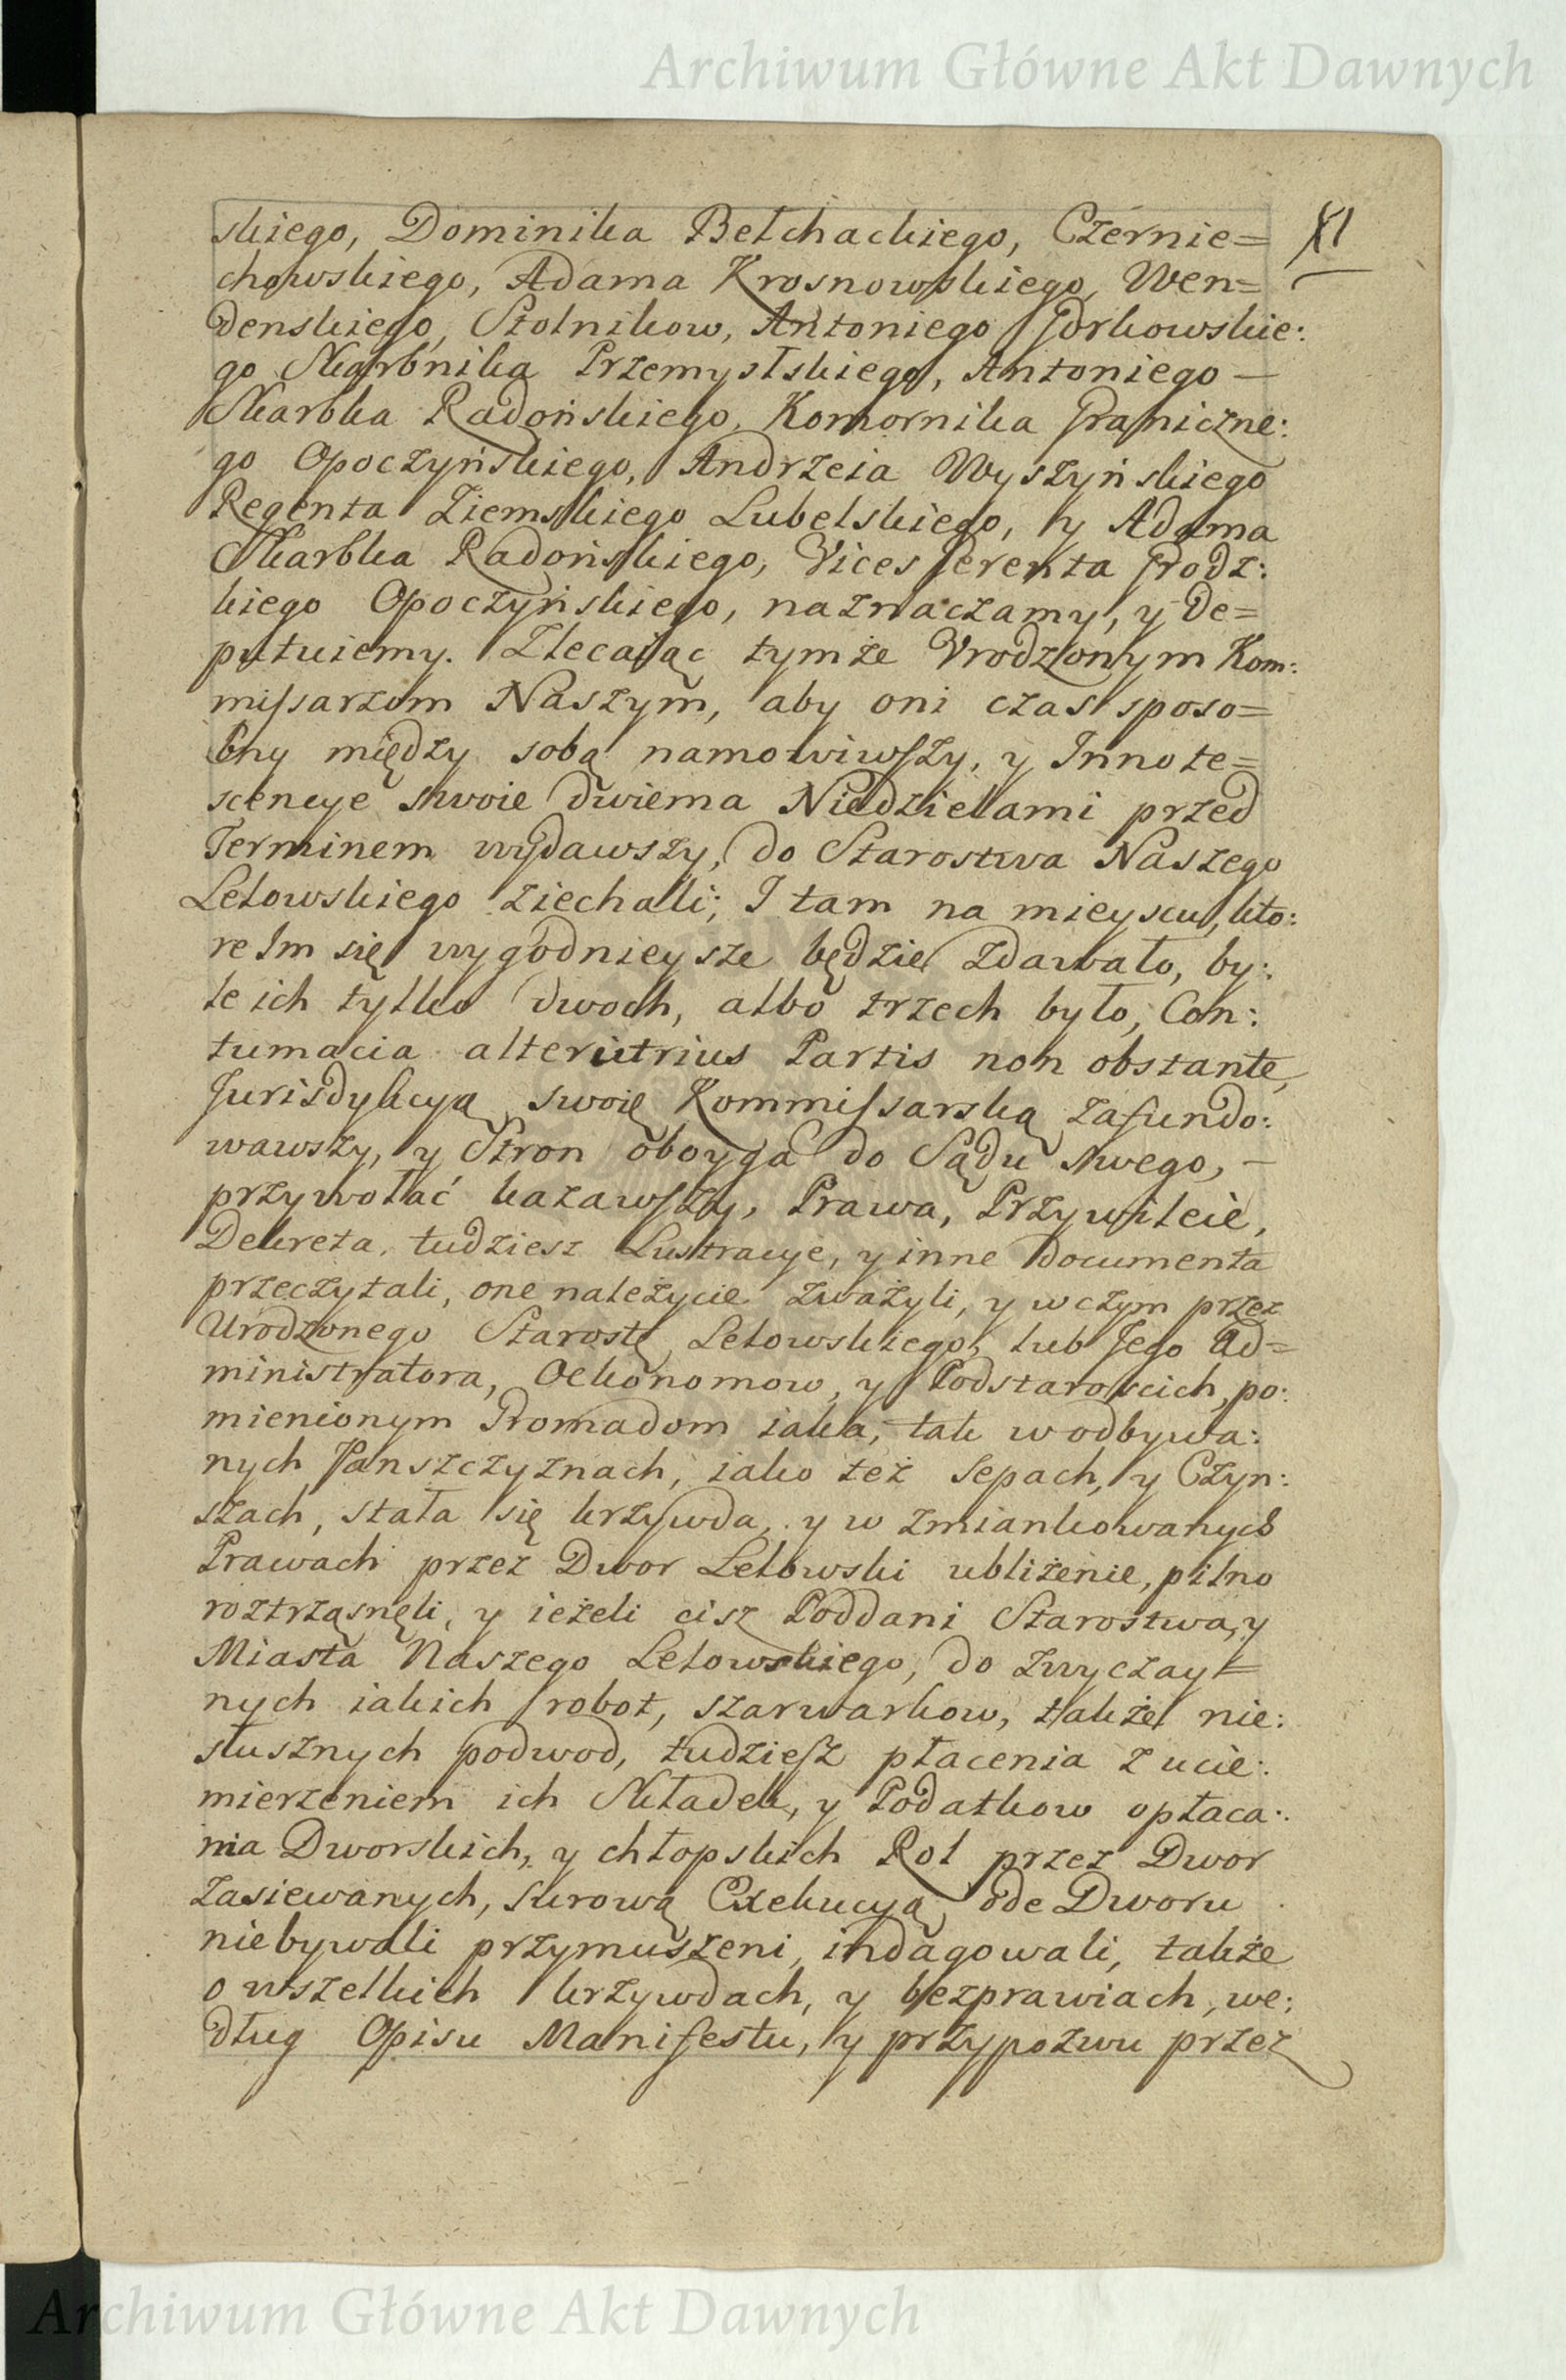 Archiwum Główne Akt Dawnych
XI
skiego, Dominika Bełchackiego, Czernie=
chowskiego, Adama Krosnowskiego, Wen=
denskiego, Stolnikow, Antoniego Gorkowskie:
go Skarbnika Przemyslskiego, Antoniego —
Skarbka Radońskiego, Komornika Graniczne:
go Opoczyńskiego, Andrzeia Wyszyńskiego
Regenta Ziemskiego Lubelskiego, y Adama
Skarbka Radońskiego, Vices Gerenta Grodz:
kiego Opoczyńskiego, naznaczamy, y De=
putuiemy. Zlecaiąc tymże Vrodzonym Kom:
missarzom Naszym, aby oni czas sposo=
bny między sobą namowiwszy, y Innote=
scencye swoie dwiema Niedzielami przed
Terminem wydawszy, do Starostwa Naszego
Lelowskiego ziechali; I tam na mieyscu, kto:
re Im się wygodnieysze będzie zdawało, by:
le ich tylko dwoch, albo trzech było, Con:
tumacia alterutrius Partis non obstante,
Jurisdykcyą swoię Kommissarską zafundo:
wawszy, y Stron oboyga do Sądu swego, —
przywołać kazawszy, Prawa, Przywileie,
Dekreta, tudziesz Lustracye, y inne Documenta
przeczytali, one należycie zważyli, y w czym przez
Urodzonego Starostę Lelowskiego, lub Jego Ad=
ministratora, Oekonomow, y Podstaroscich, po:
mienionym Gromadom iaka, tak w odbywa:
nych Panszczyznach, iako też Sepach, y Czyn:
szach, stała się krzywda, y w zmiankowanych
Prawach przez Dwor Lelowski ubliżenie, pilno
roztrząsnęli, y ieżeli cisz Poddani Starostwa, y
Miasta Naszego Lelowskiego, do zwyczay=
nych iakich robot, szarwarkow, także nie:
słusznych podwod, tudziesz płacenia z ucie:
mierzeniem ich Składek, y Podatkow opłaca:
nia Dworskich, y chłopskich Rol przez Dwor
zasiewanych, surową Exekucyą ode Dworu
niebywali przymuszeni, indagowali, także
o wszelkich krzywdach, y bezprawiach, we:
dług Opisu Manifestu, y przypozwu przez
Archiwum Główne Akt Dawnych